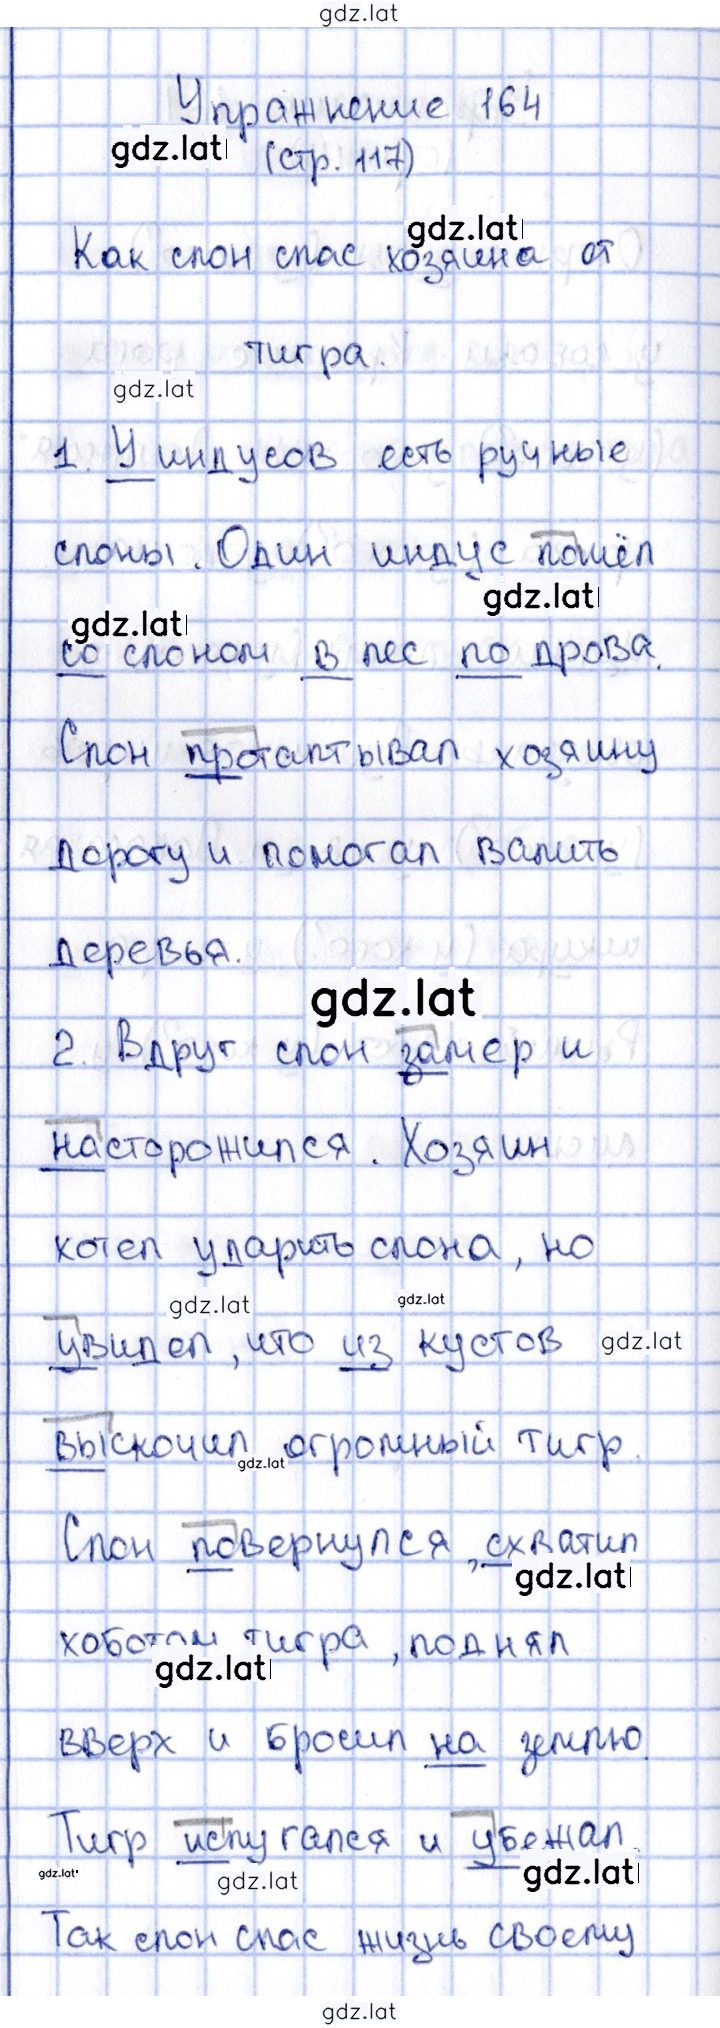 gdz.lat
Упражнение 164
gdz.lat
(стр. 117)
gdz.lat
Как слон спас хозяина от
тигра.
gdz.lat
1. У индусов есть ручные
слоны. Один индус пошёл
gdz.lat
gdz.lat
со слоном в лес по дрова.
Слон протаптывал хозяину
дорогу и помогал валить
деревья.
gdz.lat
2. Вдруг слон замер и
насторожился. Хозяин
хотел ударить слона, но
gdz.lat
gdz.lat
увидел, что из кустов
gdz.lat
выскочил огромный тигр.
gdz.lat
Слон повернулся, схватил
gdz.lat
хоботом тигра, поднял
gdz.lat
вверх и бросил на землю.
Тигр испугался и убежал.
gdz.lat
gdz.lat
gdz.lat
Так слон спас жизнь своему
gdz.lat